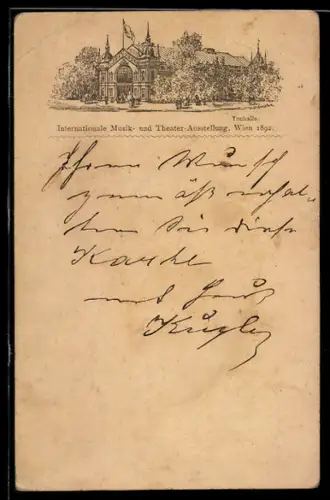 Tonhalle.
Internationale Musik- und Theater-Ausstellung, Wien 1892.
Ihrem Wunsch
gemäß erhal-
ten Sie diese
Karte
mit Gruß
Kugler